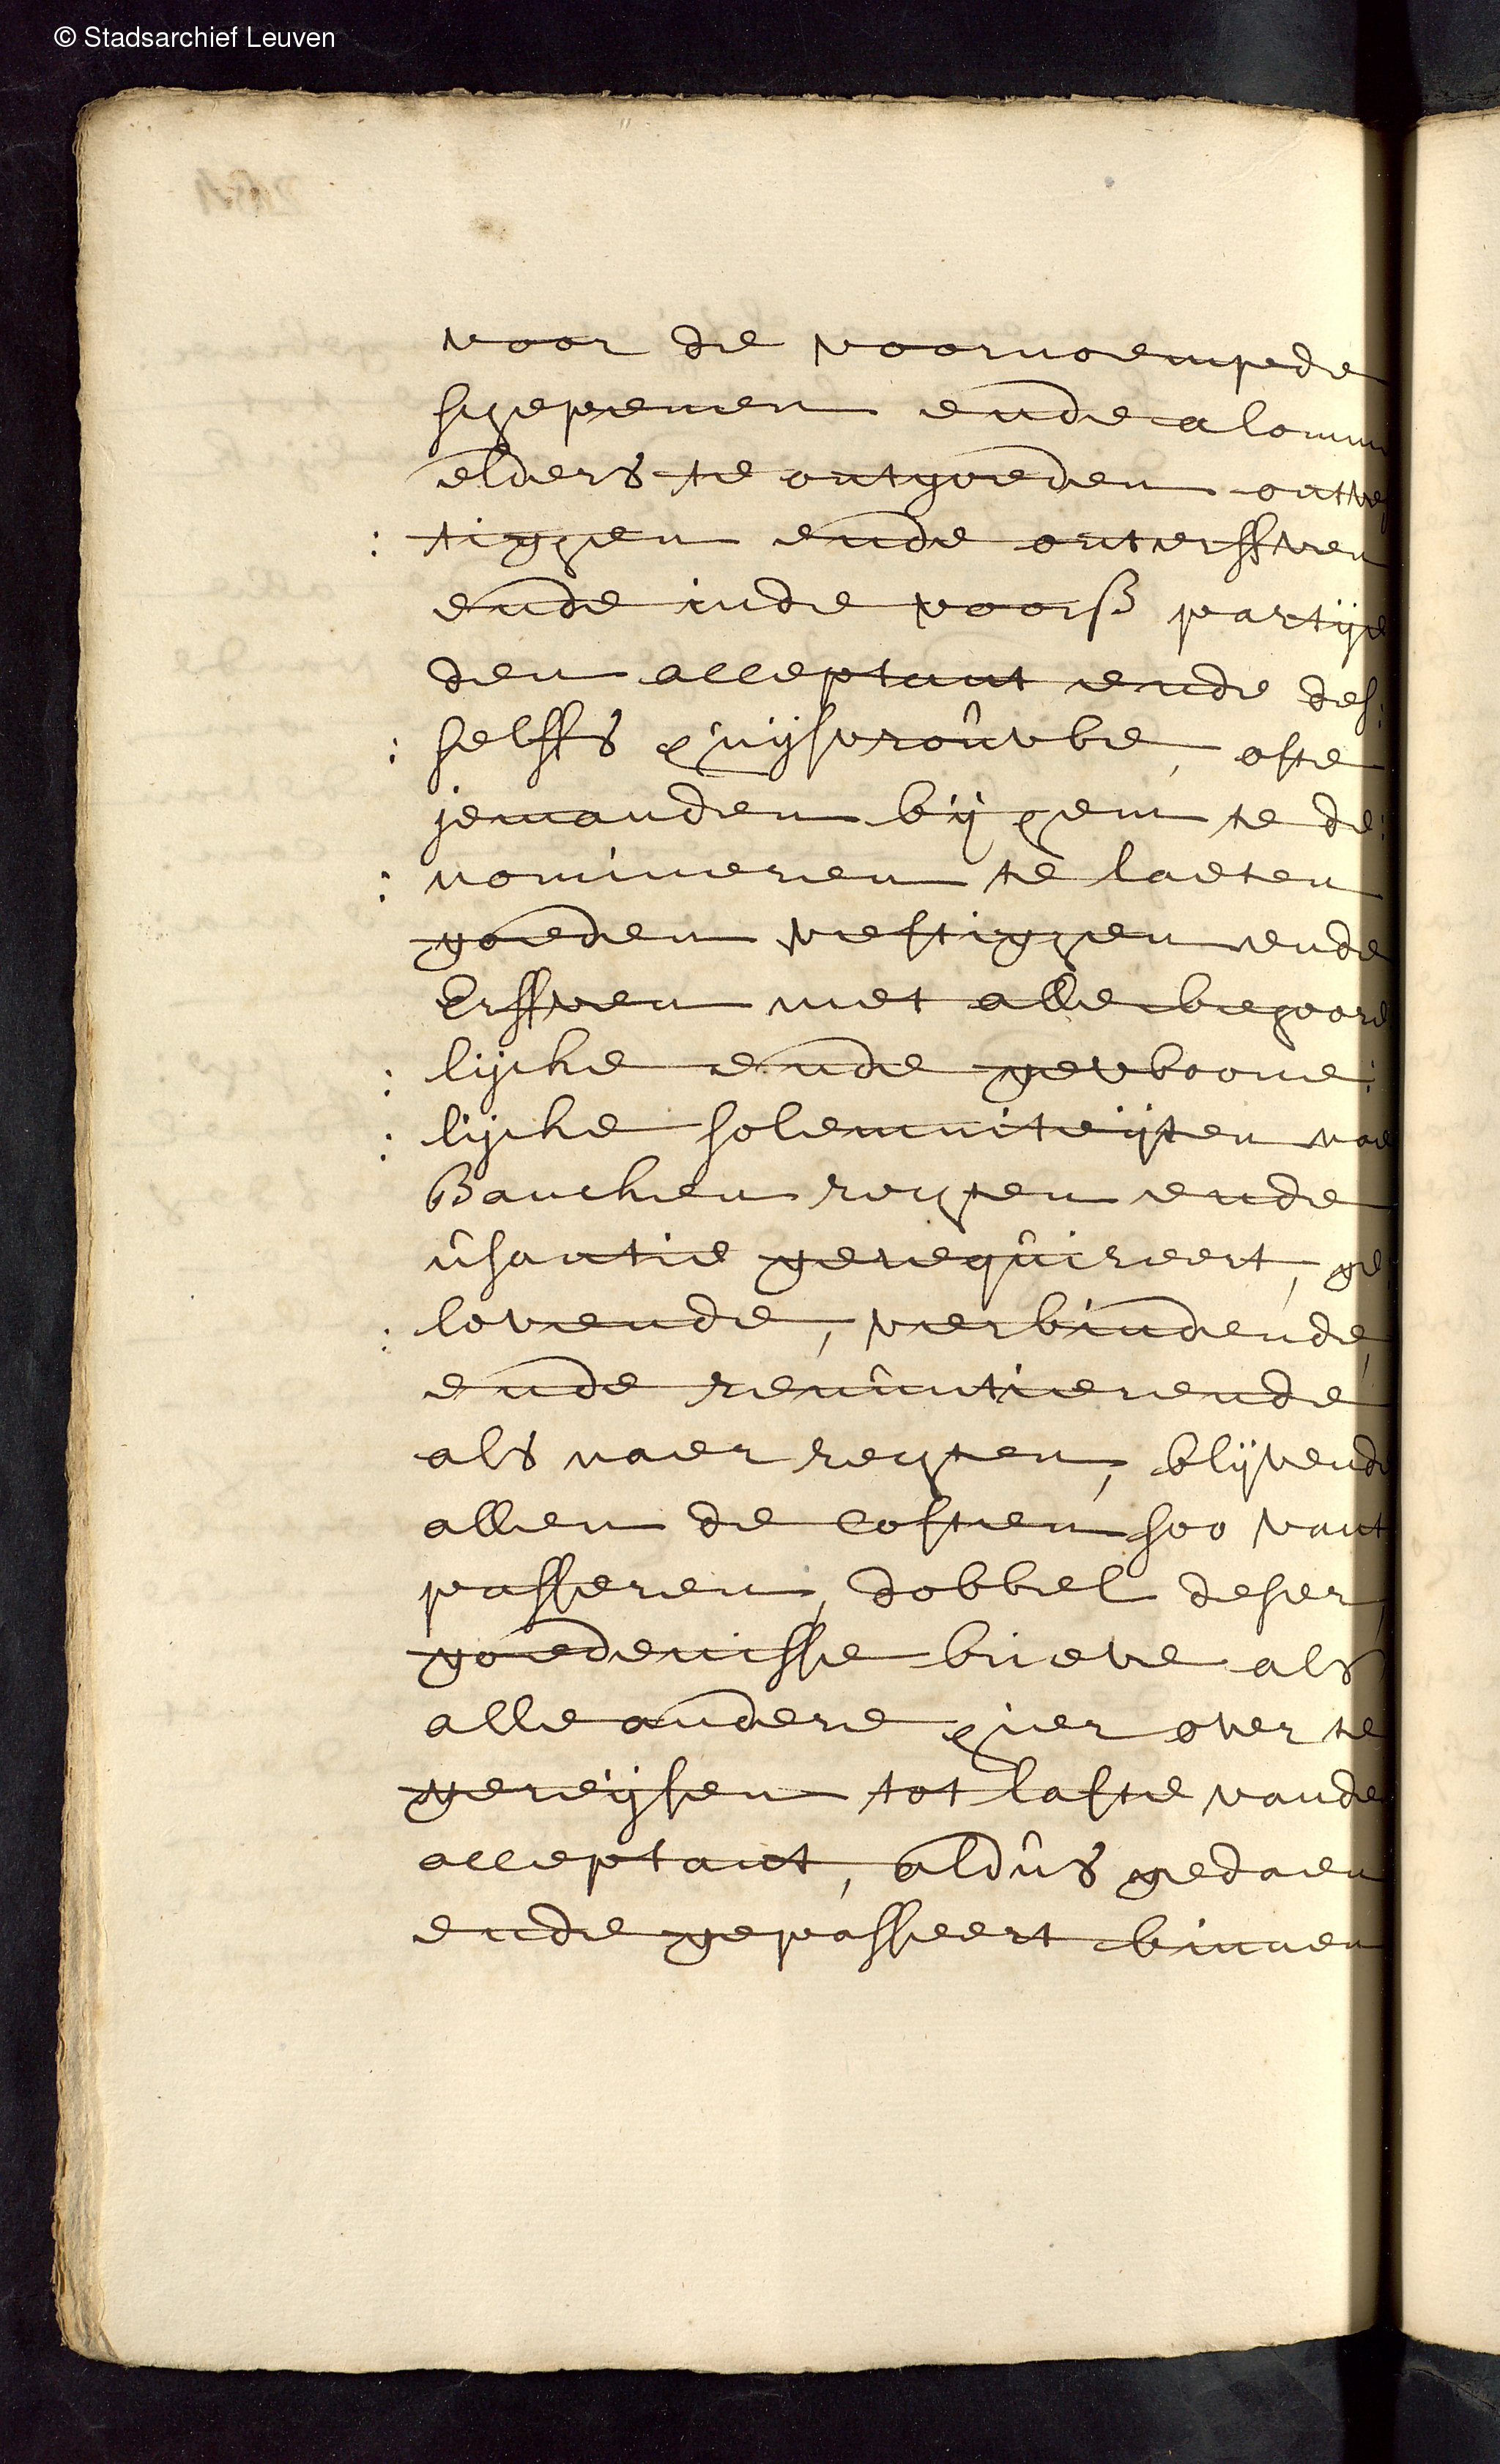 © Stadsarchief Leuven
voor de voornoempde
schepenen ende alomme
elders te ontgoeden ontves
: tighen ende onterffven
ende inde voorß partije
den acceptant ende des:
: selffs huijsvrouwe, ofte
jemanden bij hem te de:
: nomineren te laeten
goeden vestighen ende
Erffven met alle behoore
: lijcke ende gewoone:
: lijcke solemniteijten nae
Bancken rechten ende
usantie gerequireert, ge:
: lovende, verbindende,
ende renuntierende
als naer rechten, blijvende
allen de costen soo vant
passeren, dobbel deser
goedenisse brieve als
alle andere hier over te
gereijsen tot laste vanden
acceptant, aldus gedaen
ende gepasseert binnen